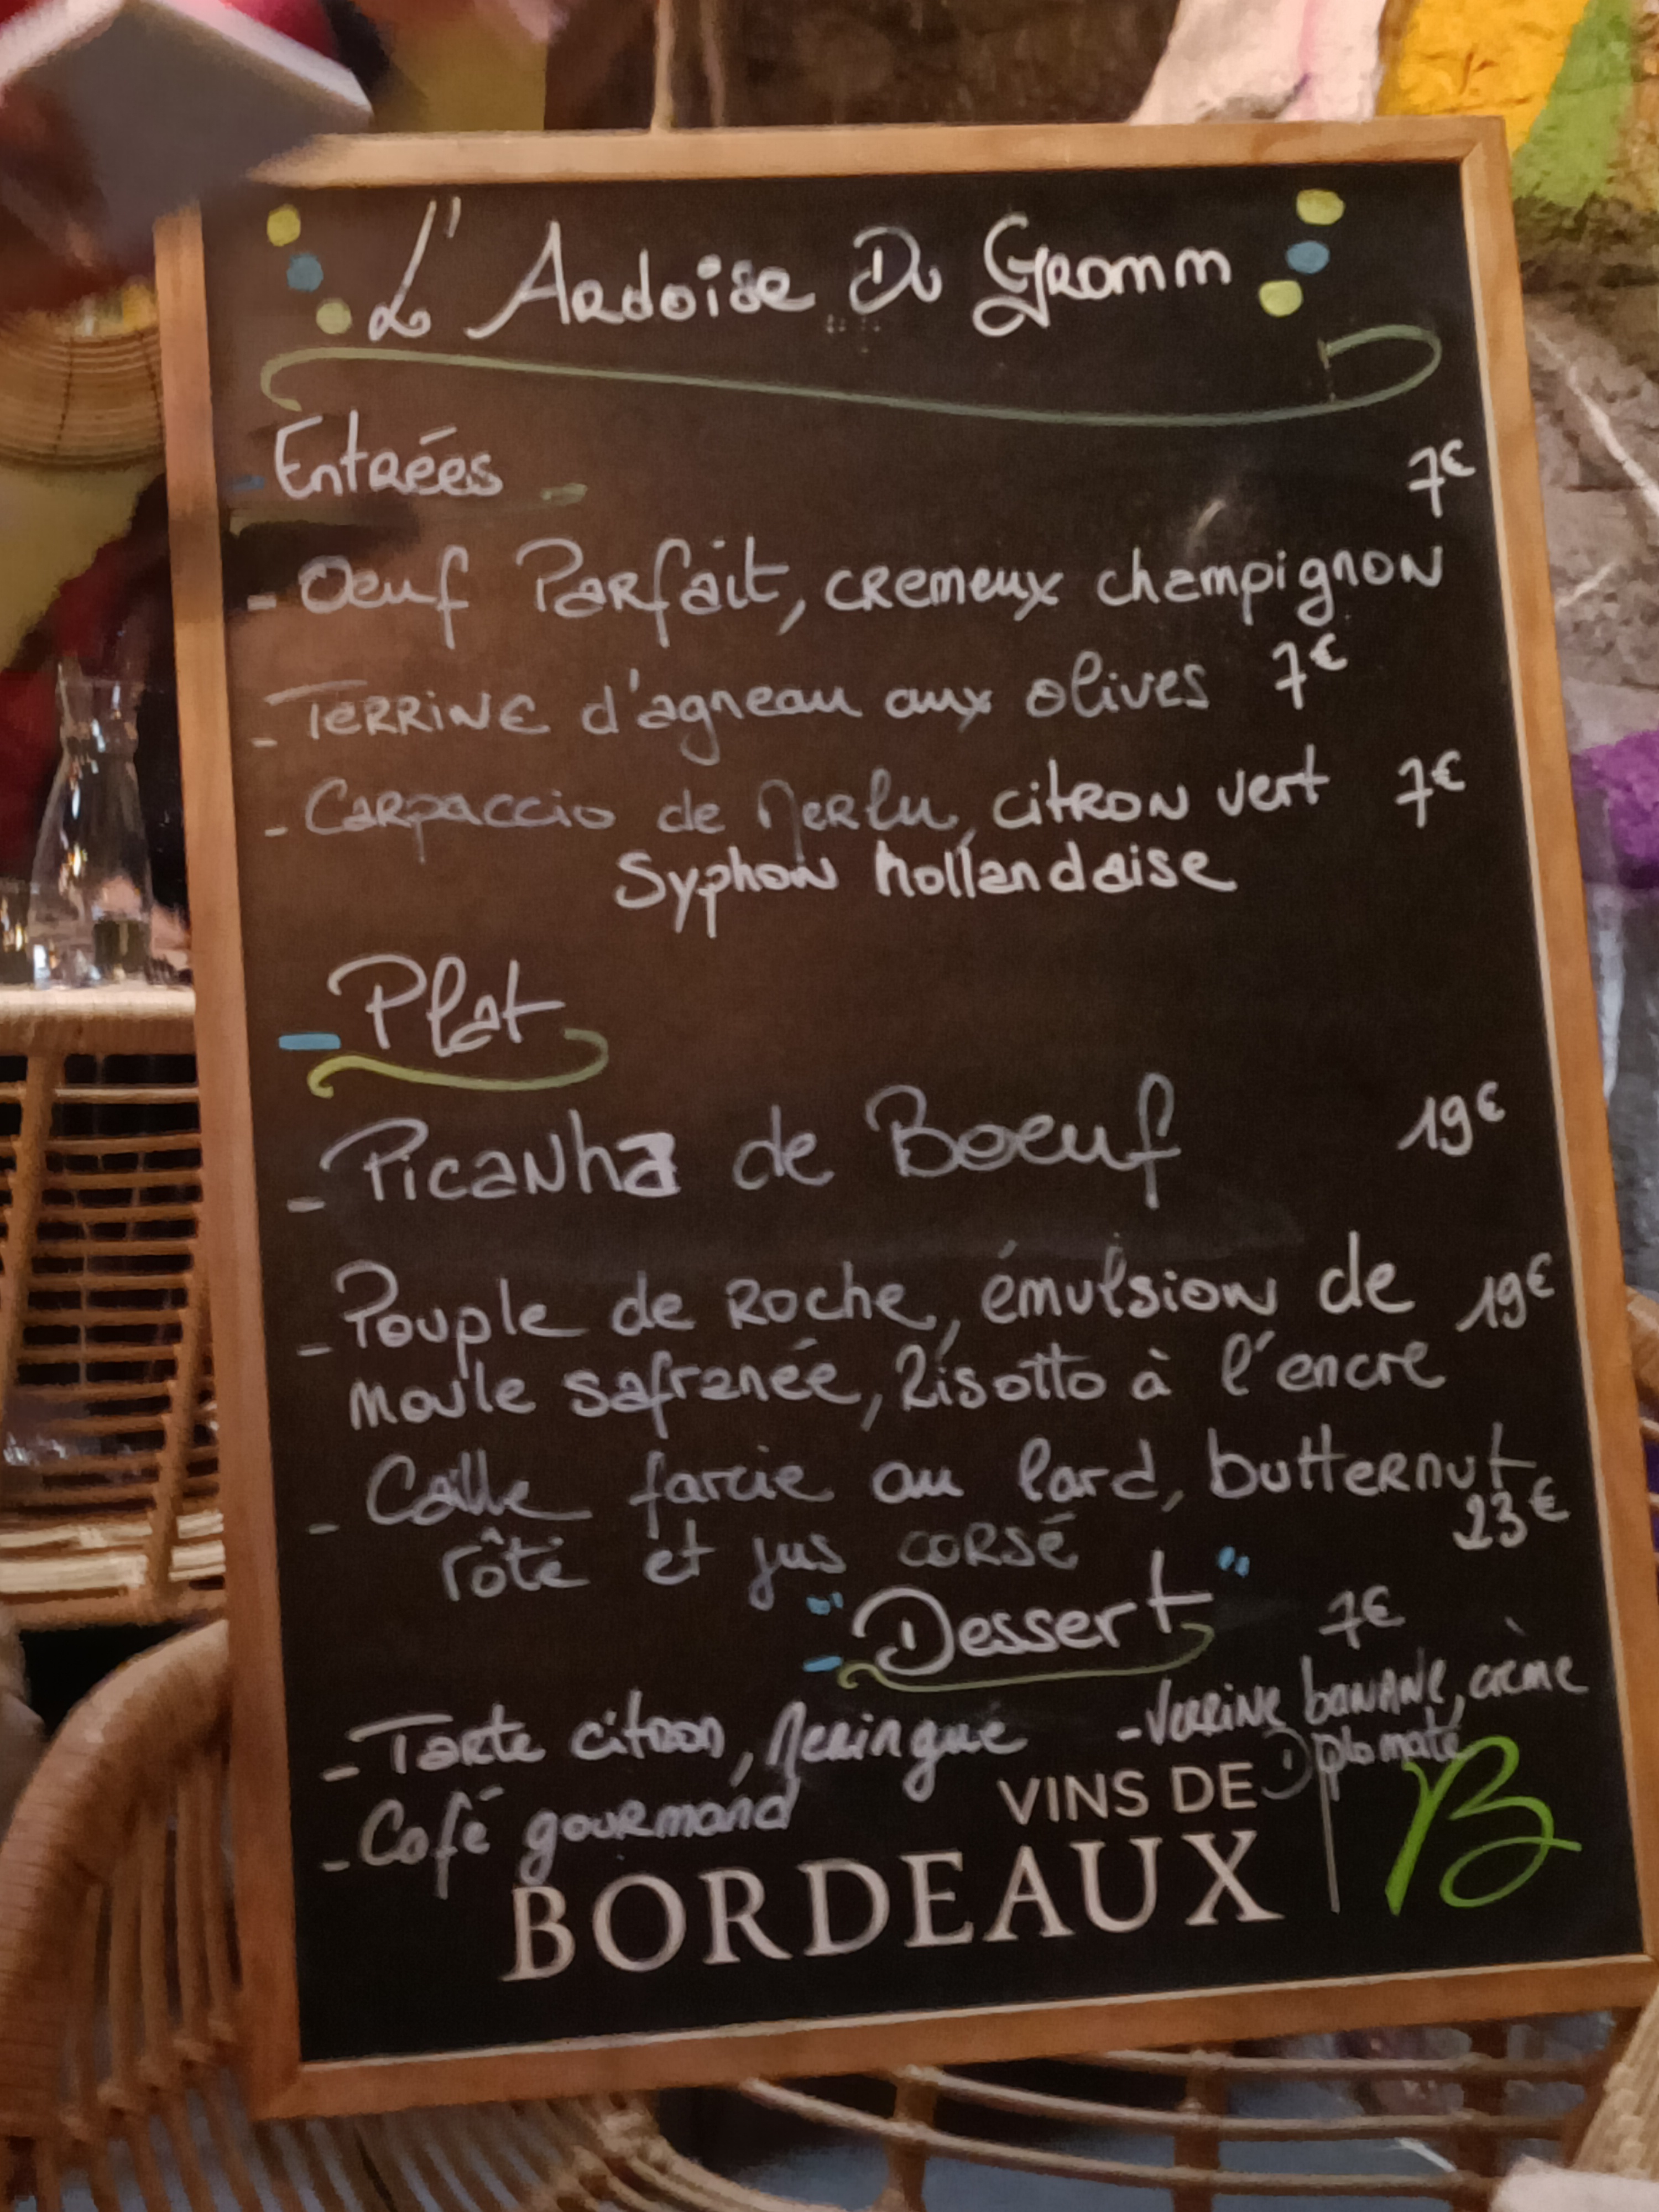 L'Ardoise Du Gromm
Entrées
7€
- Oeuf Parfait, cremeux champignon
- Terrine d'agneau aux olives 7€
- Carpaccio de Merlu, citron vert 7€
Syphon hollandaise
- Plat
- Picanha de Boeuf 19€
- Pouple de Roche, émulsion de 19€
moule safranée, Risotto à l'encre
- Caille farcie au lard, butternut
rôte et jus corsé 23€
Dessert 7€
- Tarte citron, Meringué
- Verrine banane, crème
Diplomate
- Café gourmand
VINS DE
BORDEAUX
B